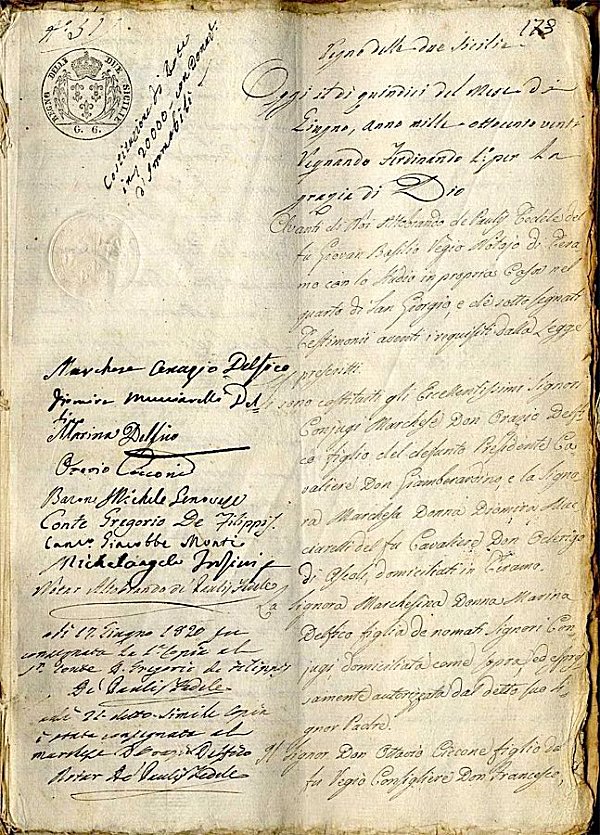 178
REGNO DELLE DUE SICILIE
G. G.
Costituzione di Dote
in 20000
d'Immobili
Regno delle due Sicilie
Oggi il di quindici del Mese di
Giugno, Anno mille ottocento venti
Regnando Ferdinando I: per la
grazia di Dio
Avanti di Noi Altobrando de Paulis Fedele del
fu Giovan Basilio Regio Notajo di Tera
mo con lo Studio in propria Casa nel
quarto di San Giorgio, e de' sotto segnati
Testimonii aventi i requisiti dalla Legge
prescritti.
Si sono costituiti gli Eccellentissimi Signori
Conjugi Marchese Don Orazio Delfi
co figlio del defunto Presidente Ca
valiere Don Giamberardino, e la Signo
ra Marchesa Donna Diomira Muc
ciarelli del fu Cavaliere Don Oderigo
di Ascoli, domiciliati in Teramo.
La Signora Marchesina Donna Marina
Delfico figlia de nomati Signori Con
jugi, domiciliata come sopra, ed espres
samente autorizzata dal detto suo Si
gnor Padre.
Il Signor Don Ottavio Ciccone figlio del
fu Regio Consigliere Don Francesco,
Marchese Orazio Delfico
Diomira Mucciarelli Del
fi
Marina Delfico
Barone Michele Genovese
Conte Gregorio De Filippis
Canco. Giacobbe Monti
Michelangelo
Notar Altobrando de' Paulis Fedele
A dì 17. Giugno 1820 fu
consegnata la 1a Copia al
Sr. Conte D. Gregorio de Filippis
De' Paulis Fedele
detto simile copia
è stata consegnata al
marchese D. Orazio Delfico
Notar De' Paulis Fedele